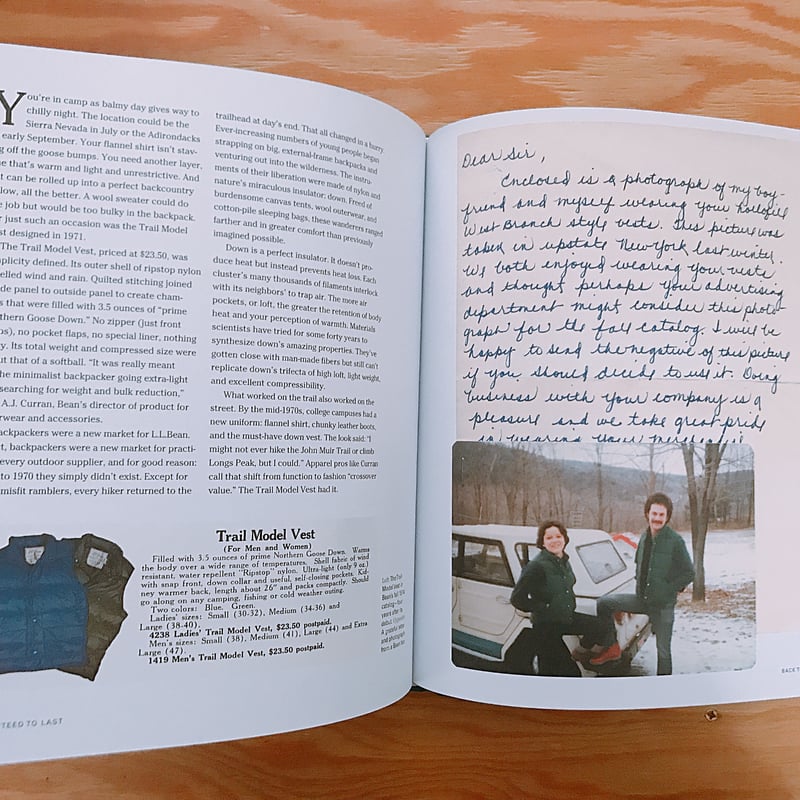 You're in camp as balmy day gives way to
chilly night. The location could be the
Sierra Nevada in July or the Adirondacks
early September. Your flannel shirt isn't stav-
g off the goose bumps. You need another layer,
e that's warm and light and unrestrictive. And
t can be rolled up into a perfect backcountry
low, all the better. A wool sweater could do
e job but would be too bulky in the backpack.
r just such an occasion was the Trail Model
st designed in 1971.
The Trail Model Vest, priced at $23.50, was
plicity defined. Its outer shell of ripstop nylon
elled wind and rain. Quilted stitching joined
de panel to outside panel to create cham-
s that were filled with 3.5 ounces of "prime
thern Goose Down." No zipper (just front
ps), no pocket flaps, no special liner, nothing
y. Its total weight and compressed size were
ut that of a softball. "It was really meant
he minimalist backpacker going extra-light
searching for weight and bulk reduction,"
A.J. Curran, Bean's director of product for
rwear and accessories.
ackpackers were a new market for L.L.Bean.
t, backpackers were a new market for practi-
every outdoor supplier, and for good reason:
to 1970 they simply didn't exist. Except for
misfit ramblers, every hiker returned to the
trailhead at day's end. That all changed in a hurry.
Ever-increasing numbers of young people began
strapping on big, external-frame backpacks and
venturing out into the wilderness. The instru-
ments of their liberation were made of nylon and
nature's miraculous insulator: down. Freed of
burdensome canvas tents, wool outerwear, and
cotton-pile sleeping bags, these wanderers ranged
farther and in greater comfort than previously
imagined possible.
Down is a perfect insulator. It doesn't pro-
duce heat but instead prevents heat loss. Each
cluster's many thousands of filaments interlock
with its neighbors' to trap air. The more air
pockets, or loft, the greater the retention of body
heat and your perception of warmth. Materials
scientists have tried for some forty years to
synthesize down's amazing properties. They've
gotten close with man-made fibers but still can't
replicate down's trifecta of high loft, light weight,
and excellent compressibility.
What worked on the trail also worked on the
street. By the mid-1970s, college campuses had a
new uniform: flannel shirt, chunky leather boots,
and the must-have down vest. The look said: "I
might not ever hike the John Muir Trail or climb
Longs Peak, but I could." Apparel pros like Curran
call that shift from function to fashion "crossover
value." The Trail Model Vest had it.
Trail Model Vest
(For Men and Women)
Filled with 3.5 ounces of prime Northern Goose Down. Warms
the body over a wide range of temperatures. Shell fabric of wind
resistant, water repellent "Ripstop" nylon. Ultra-light (only 9 oz.)
with snap front, down collar and useful, self-closing pockets. Kid-
ney warmer back, length about 26" and packs compactly. Should
go along on any camping, fishing or cold weather outing.
Two colors: Blue. Green.
Ladies' sizes: Small (30-32), Medium (34-36) and
Large (38-40).
4238 Ladies' Trail Model Vest, $23.50 postpaid.
Men's sizes: Small (38), Medium (41), Large (44) and Extra
Large (47).
1419 Men's Trail Model Vest, $23.50 postpaid.
Left: The Trail
Model Vest in
Bean's fall 1974
catalog—four
years after its
debut.
A grateful letter
and photograph
from a Bean
TEED TO LAST
Dear Sir,
Enclosed is a photograph of my boy-
friend and myself wearing your
West Branch style vests. This picture was
taken in upstate New York last winter.
We both enjoyed wearing your vests
and thought perhaps your advertising
department might consider this photo-
graph for the fall catalog. I will be
happy to send the negative of this picture
if you should decide to use it. Doing
business with your company is a
pleasure and we take great pride
in wearing your
BACK T